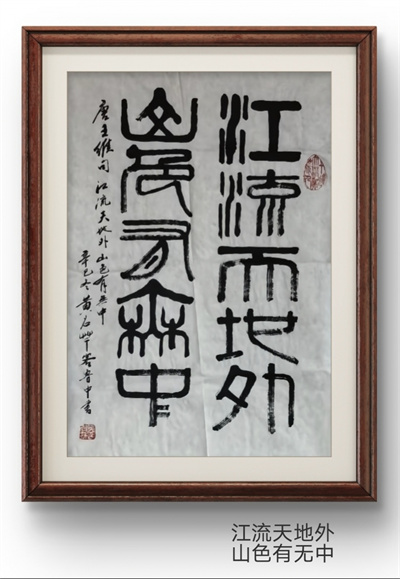 江流天地外
山色有無中
唐王維句 江流天地外 山色有无中
辛巳冬黄石
江流天地外
山色有无中